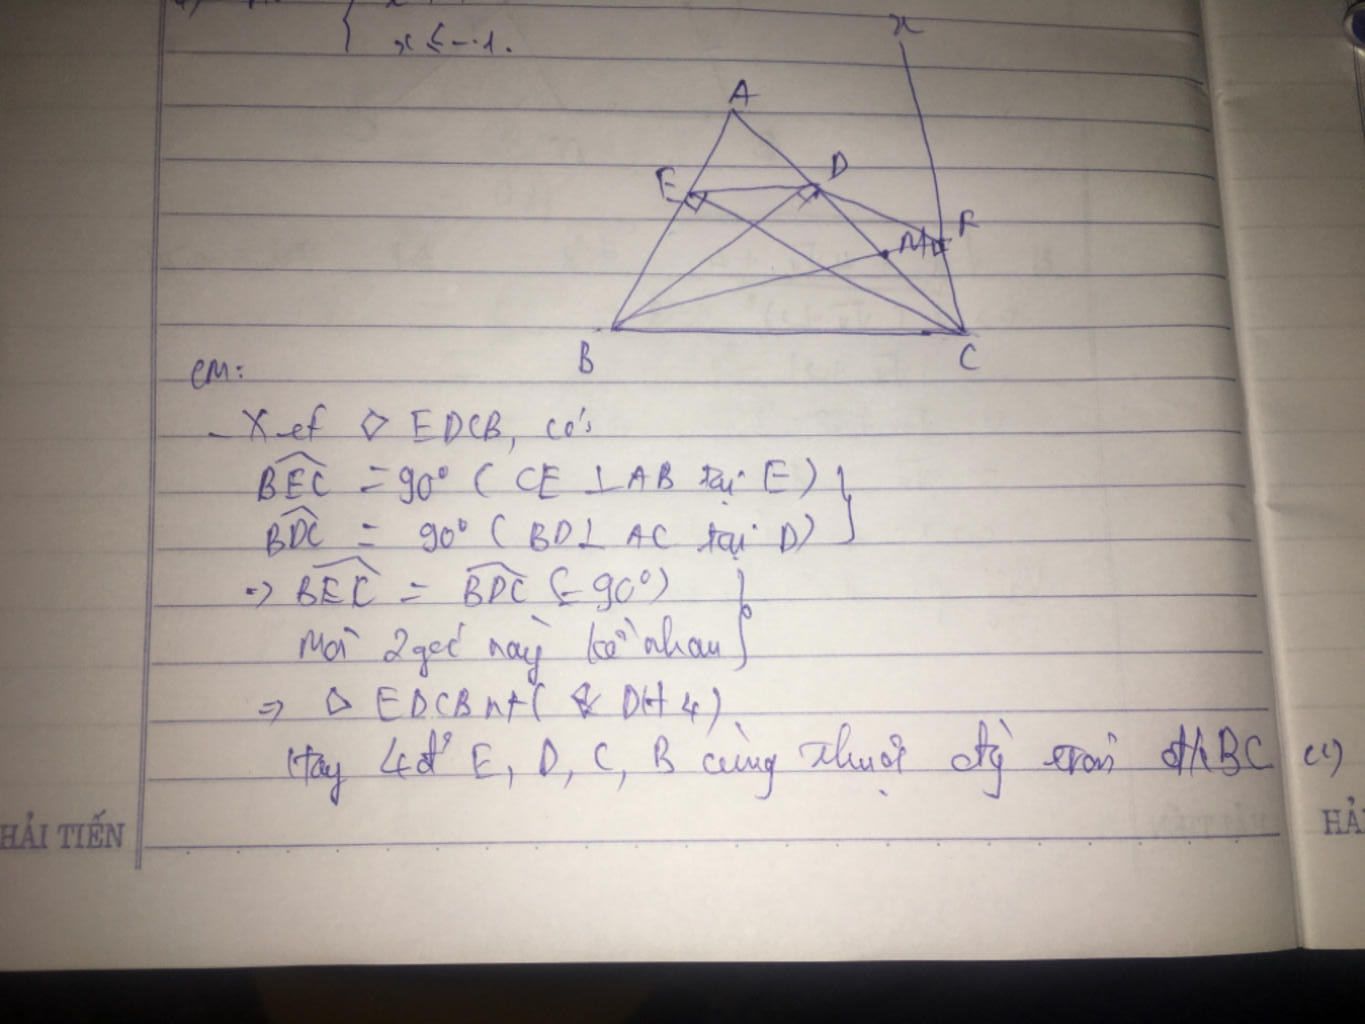 x ≤ -1.
x
A
E
D
M
F
B
C
CM:
- Xét ◇ EDCB, có:
BEC = 90° ( CE ⊥ AB tại E)
BDC = 90° ( BD ⊥ AC tại D)
=> BEC = BDC (= 90°)
Mà 2 góc này kề nhau
=> ◇ EDCB nt ( DH 4)
Hay 4đ' E, D, C, B cùng thuộc đg tròn đk BC (1)
HẢI TIẾN
HẢ